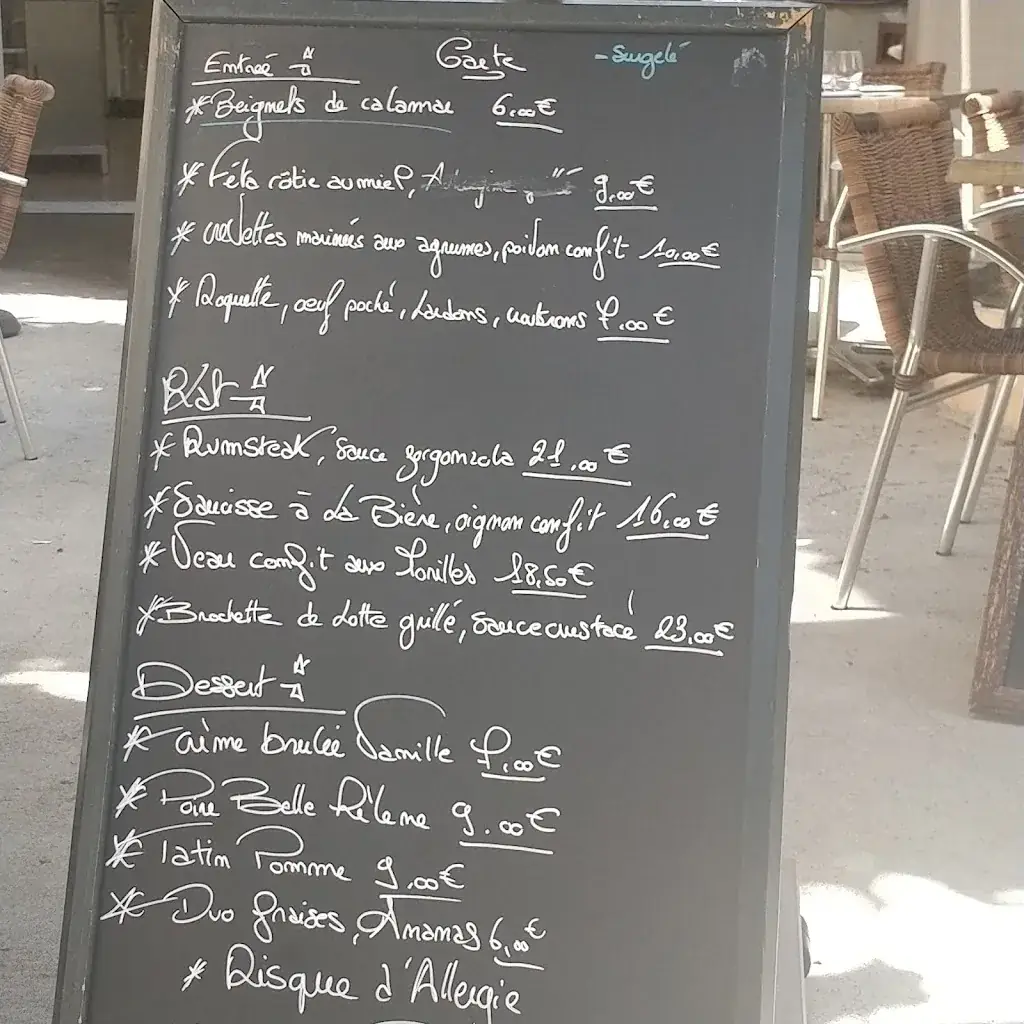 Entrée
Carte
- Surgelé
* Beignets de calamar 6,00€
* Féta rôtie au miel, 9,00€
* crevettes marinées aux agrumes, poivron confit 10,00€
* Roquette, oeuf poché, Lardons, croutons 7,00€
Plat
* Rumsteak, sauce gorgonzola 21,00€
* Saucisse à la Bière, oignon confit 16,00€
* Veau confit aux 18,50€
* Brochette de Lotte grillé, sauce crustacé 23,00€
Dessert
* crème brulée Vanille 7,00€
* Poire Belle Hélène 9,00€
* Tatin Pomme 9,00€
* Duo fraises, Ananas 6,00€
* Risque d'Allergie